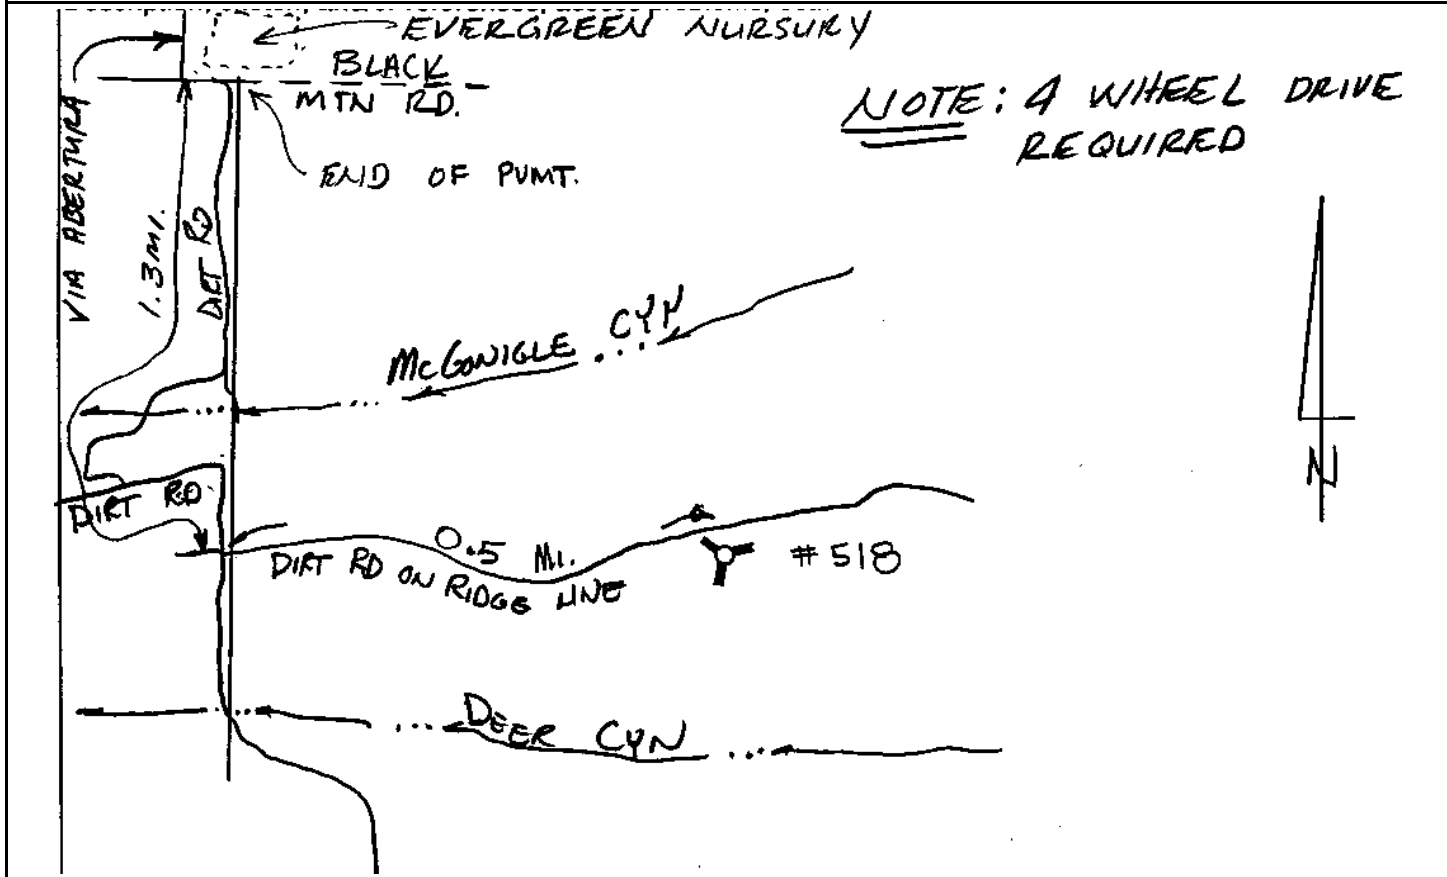 EVERGREEN NURSURY
BLACK
MTN RD.
NOTE: 4 WHEEL DRIVE
REQUIRED
END OF PVMT.
VIA ABERTURA
1.3 MI.
DIRT RD
McGONIGLE CYN
N
DIRT RD
0.5 MI.
DIRT RD ON RIDGE LINE
#518
DEER CYN